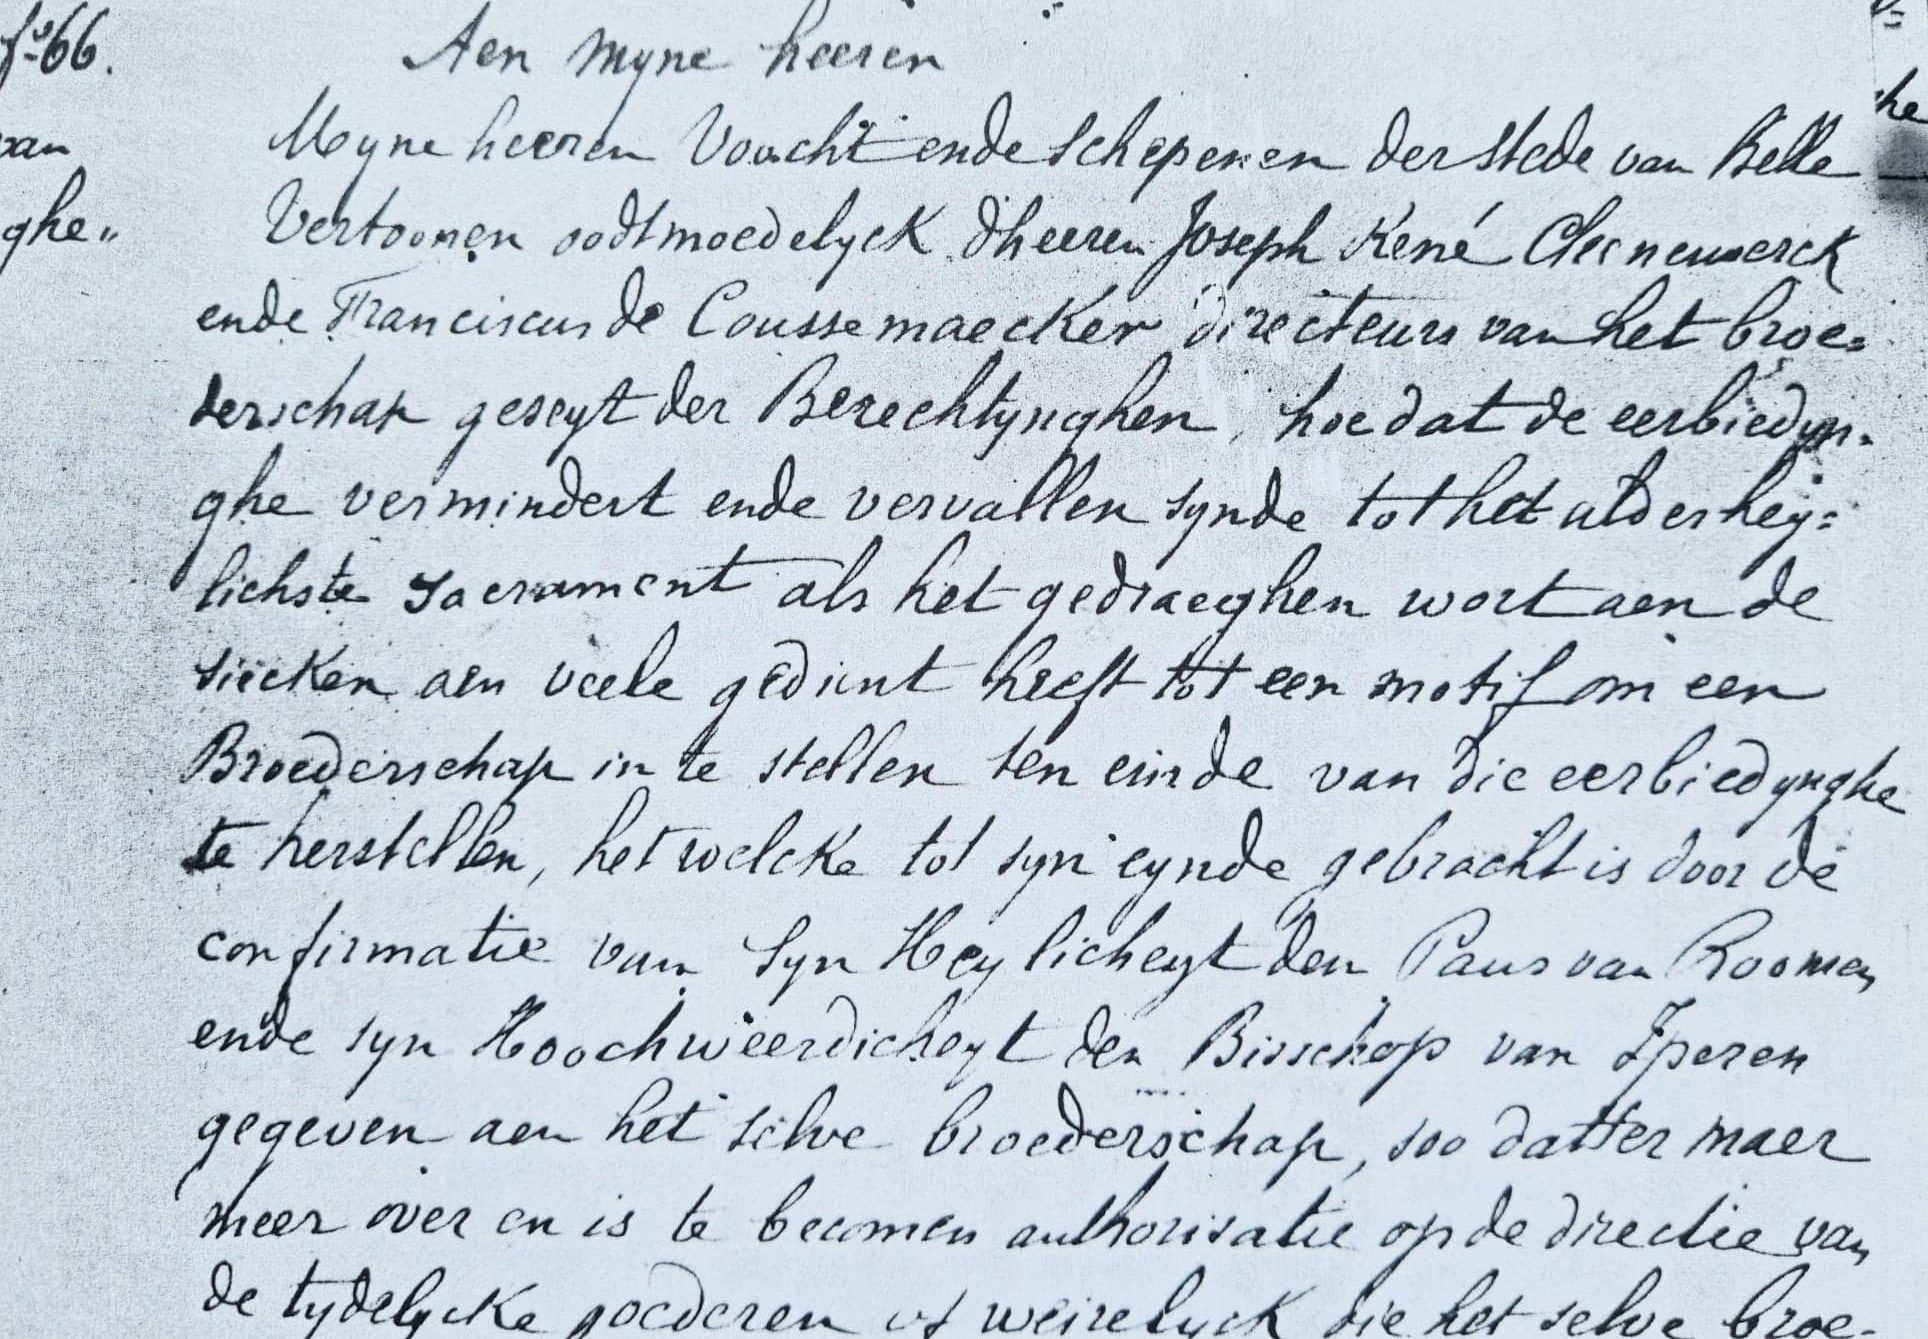 fº 66.
Aen Myne heeren
van
Myne heeren Voocht ende schepenen der stede van Belle
ghe„
Vertoonen oodtmoedelyck d'heeren Joseph René
ende Franciscus de Coussemaecker directeurs van het broe=
derschap geseyt der Berechtynghen, hoe dat de eerbiedyn-
ghe vermindert ende vervallen synde tot het alderhey=
lichste Sacrament als het gedraeghen wort aen de
siecken aen veele gedient heeft tot een motif om een
Broederschap in te stellen ten einde van die eerbiedynghe
te herstellen, het welcke tot syn eynde gebracht is door de
confirmatie van Syn Heylicheyt den Paus van Roomen
ende syn Hoochweerdicheyt den Bisschop van Iperen
gegeven aen het selve broederschap, soo datter maer
meer over en is te becomen authorisatie op de directie van
de tydelycke goederen of weirelyck die het selve broe-